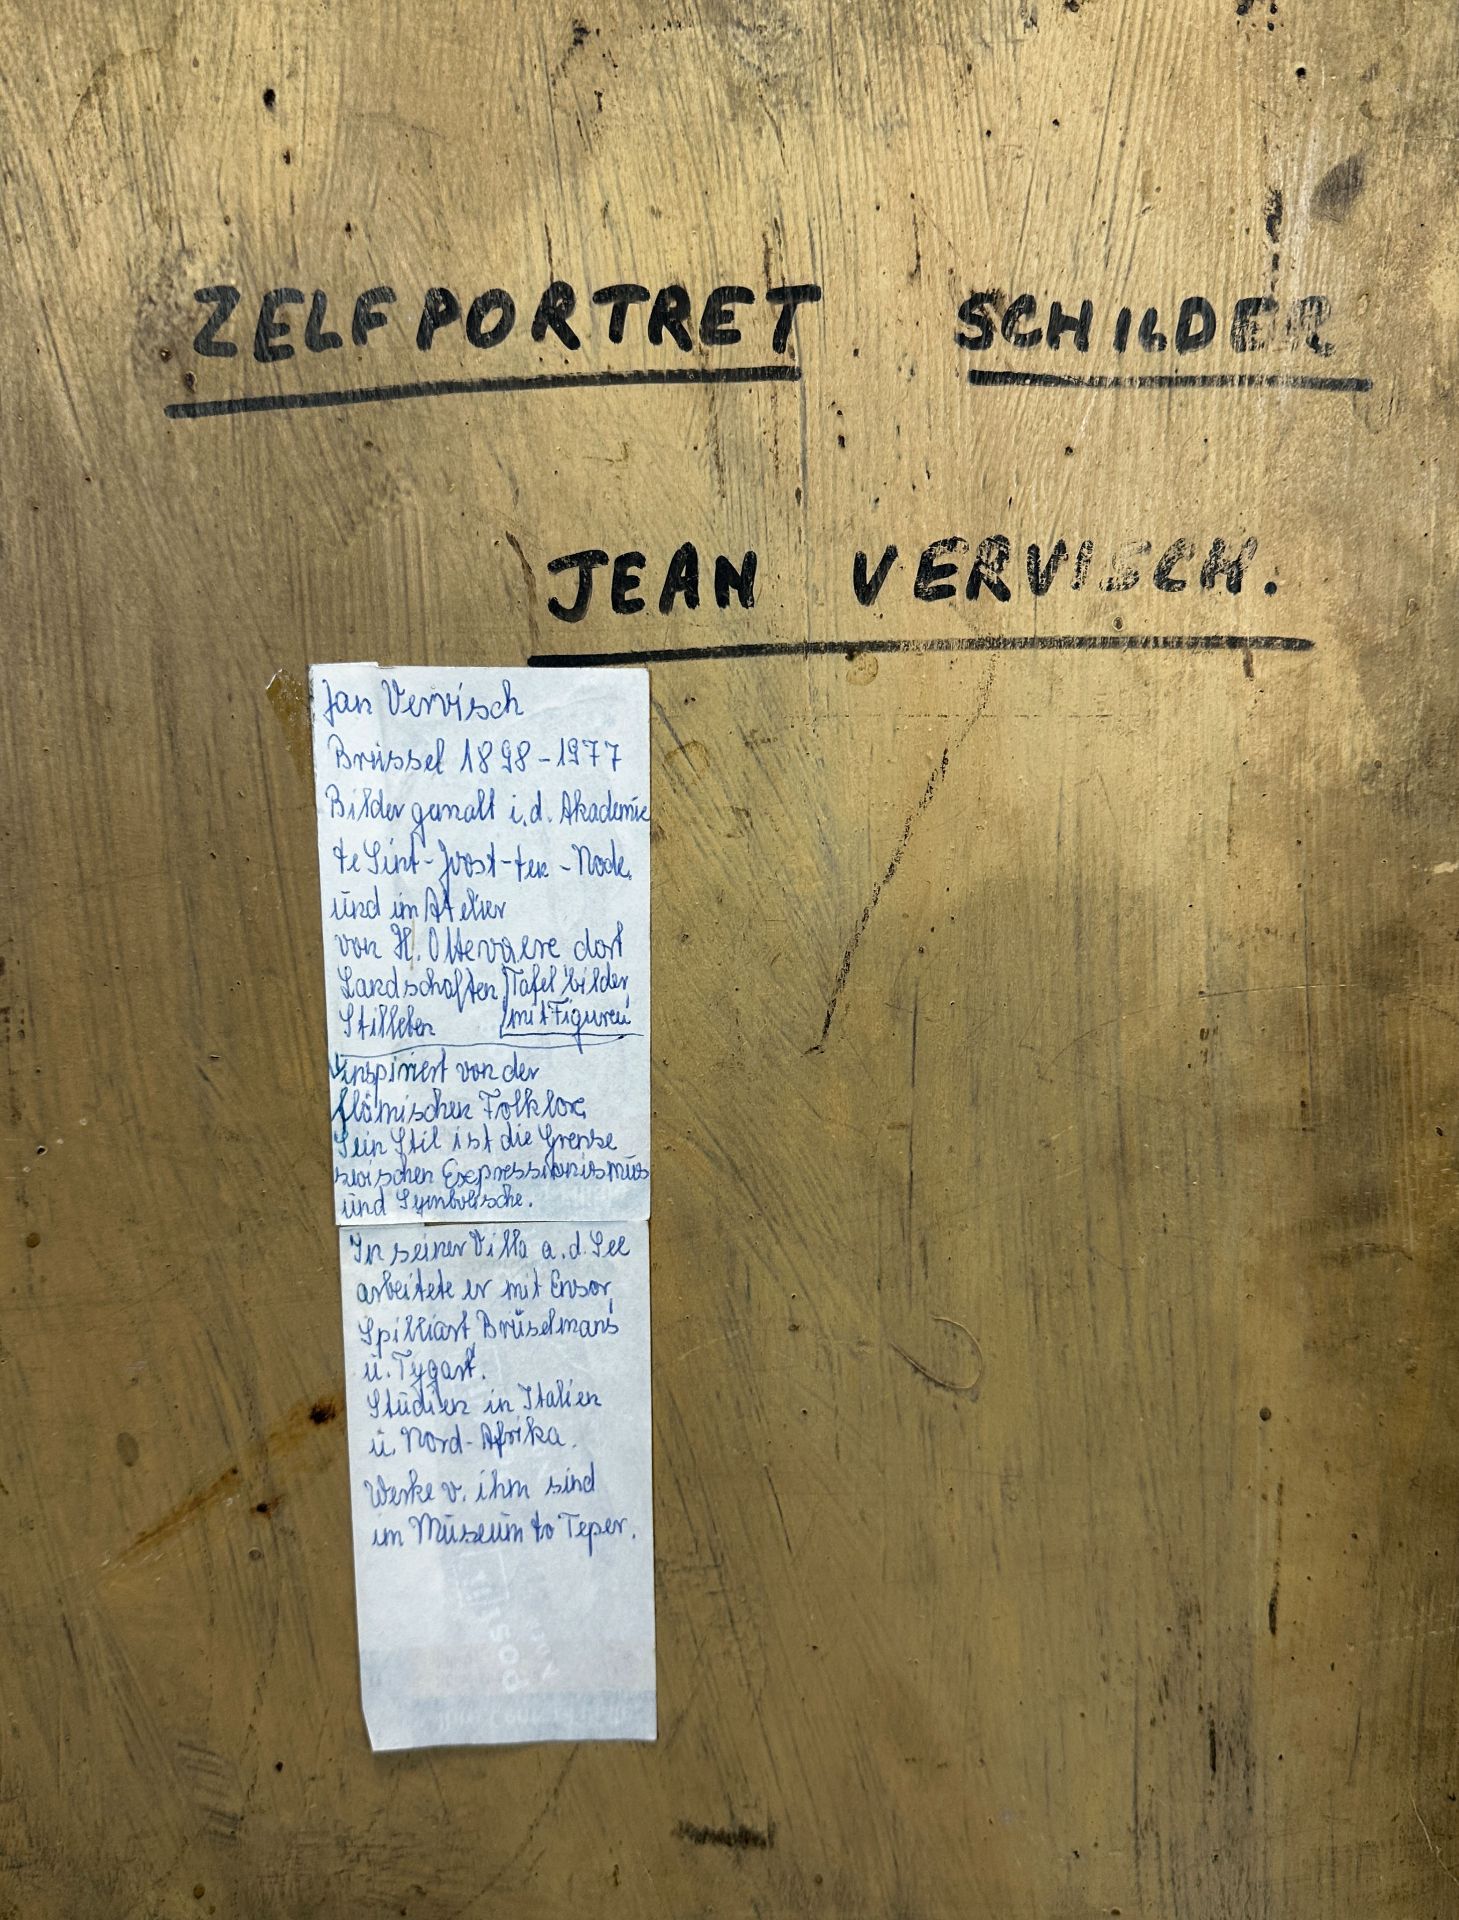 ZELFPORTRET SCHILDER
JEAN VERVISCH.
Jan Vervisch
Brüssel 1898-1977
Bilder gemalt i.d. Akademie
te Sint-Joost-ten-Node,
und im Atelier
von H. Ottevaere dort
Landschaften, Tafelbilder,
Stilleben mit Figuren
inspiriert von der
flämischen Folklore,
Sein Stil ist die Grenze
zwischen Expressionismus
und Symbolische.
In seiner Villa a.d. See
arbeitete er mit Ensor,
Spilliart, Brüselmans
u. Tygat.
Studien in Italien
u. Nord-Afrika.
Werke v. ihm sind
im Museum to Teper.